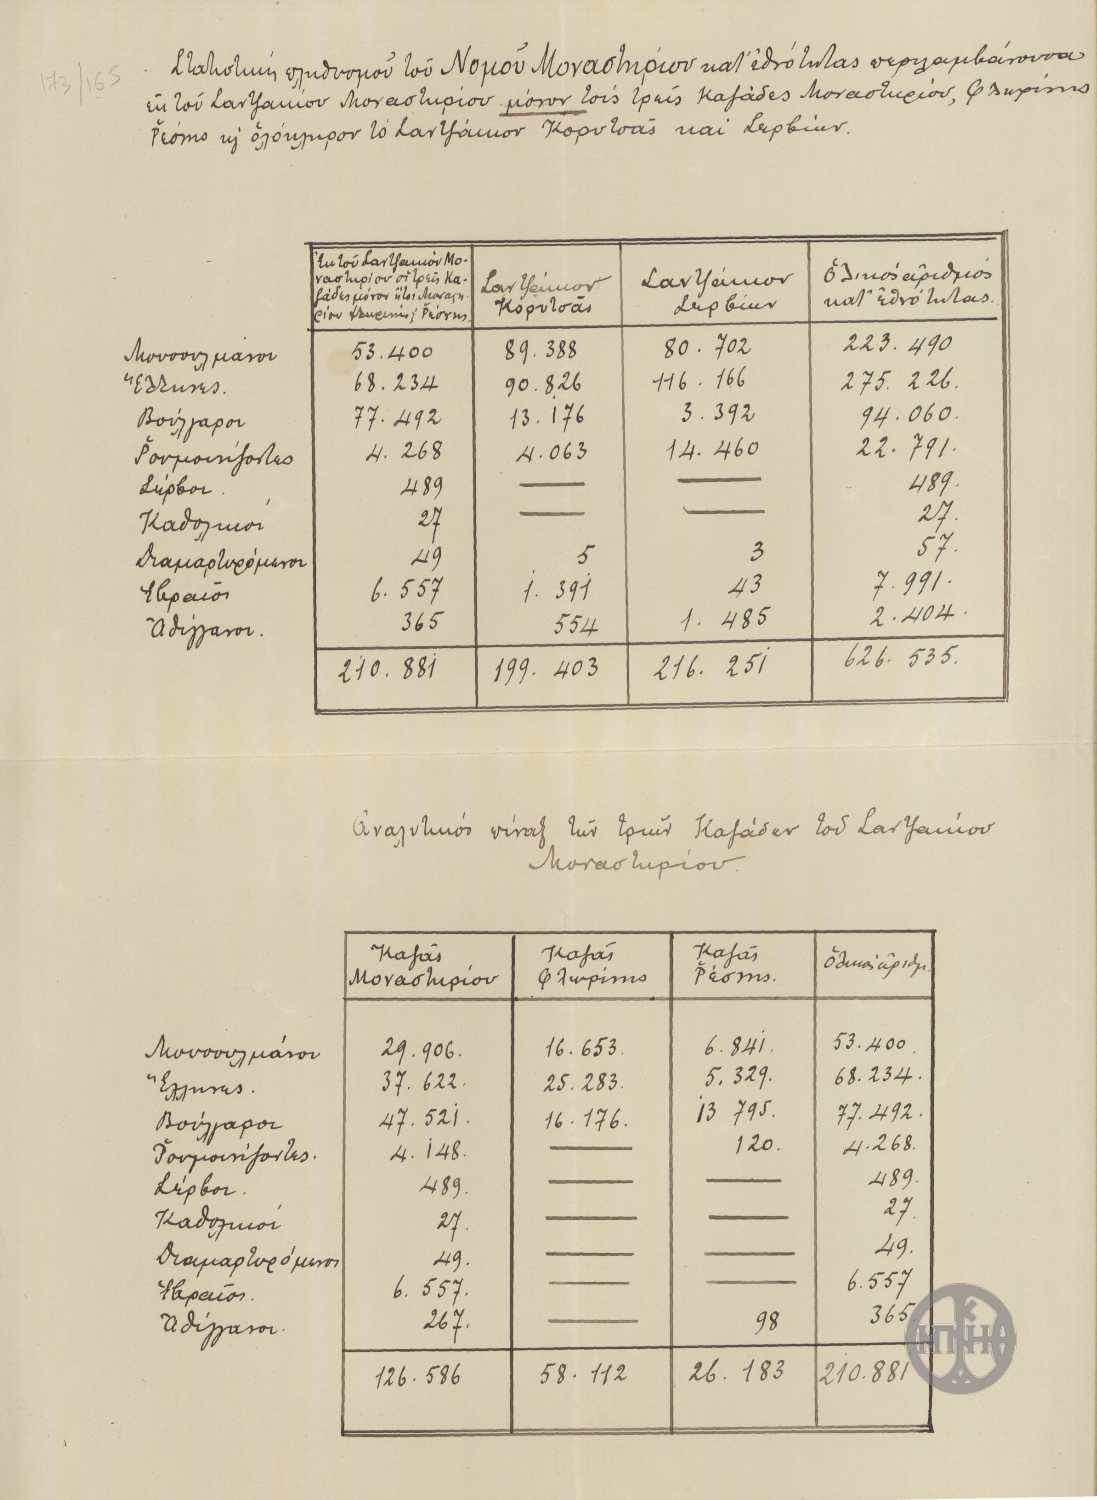 173/165
Στατιστική πληθυσμοῦ τοῦ Νομοῦ Μοναστηρίου κατ' ἐθνότητας περιλαμβάνουσα
ἐκ τοῦ Σαντζακίου Μοναστηρίου μόνον τοὺς τρεῖς Καζάδες Μοναστηρίου, Φλωρίνης
Ῥέσνης κ ὁλόκληρον τὸ Σαντζάκιον Κορυτσᾶς καὶ Σερβίων.
Ἐκ τοῦ Σαντζακίου Μο-
ναστηρίου οἱ τρεῖς Κα-
ζάδες μόνον ἤτοι Μοναστη-
ρίου Φλωρίνης, Ῥέσνης.
Σαντζάκιον
Κορυτσᾶς
Σαντζάκιον
Σερβίων
Ὁλικὸς ἀριθμὸς
κατ' ἐθνότητας.
Μουσουλμάνοι 53.400 89.388 80.702 223.490
Ἕλληνες. 68.234 90.826 116.166 275.226.
Βούλγαροι 77.492 13.176 3.392 94.060.
Ῥουμουνίζοντες 4.268 4.063 14.460 22.791.
Σέρβοι. 489 — — 489.
Καθολικοί 27 — — 27.
Διαμαρτυρόμενοι 49 5 3 57.
Ἑβραῖοι 6.557 1.391 43 7.991.
Ἀθίγγανοι. 365 554 1.485 2.404.
210.881 199.403 216.251 626.535.
Ἀναλυτικὸς πίναξ τῶν τριῶν Καζάδων τοῦ Σαντζακίου
Μοναστηρίου.
Καζᾶς
Μοναστηρίου
Καζᾶς
Φλωρίνης
Καζᾶς
Ῥέσνης.
Ὁλικοὶ ἀριθμ.
Μουσουλμάνοι 29.906. 16.653. 6.841. 53.400.
Ἕλληνες. 37.622. 25.283. 5.329. 68.234.
Βούλγαροι 47.521. 16.176. 13 795. 77.492.
Ῥουμουνίζοντες. 4.148. — 120. 4.268.
Σέρβοι. 489. — — 489.
Καθολικοί 27. — — 27.
Διαμαρτυρόμενοι 49. — — 49.
Ἑβραῖοι. 6.557. — — 6.557
Ἀθίγγανοι. 267. — 98 365
126.586 58.112 26.183 210.881